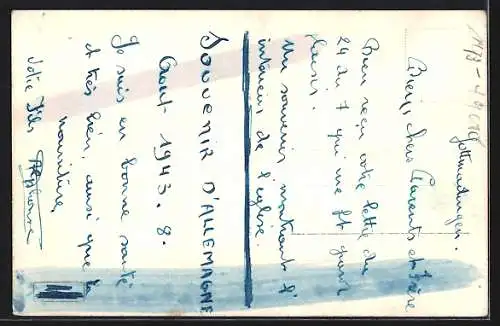 Gottmadingen.
Biens chers Parents et Frère
Bien reçu votre lettre du
24 du 7 qui me fit grand
plaisir.
Un souvenir montrant l'
intérieur de l'église.
SOUVENIR D'ALLEMAGNE
Aout 1943.
Je suis en bonne santé
et très bien ainsi que la
nourriture.
Votre fils Alphonse